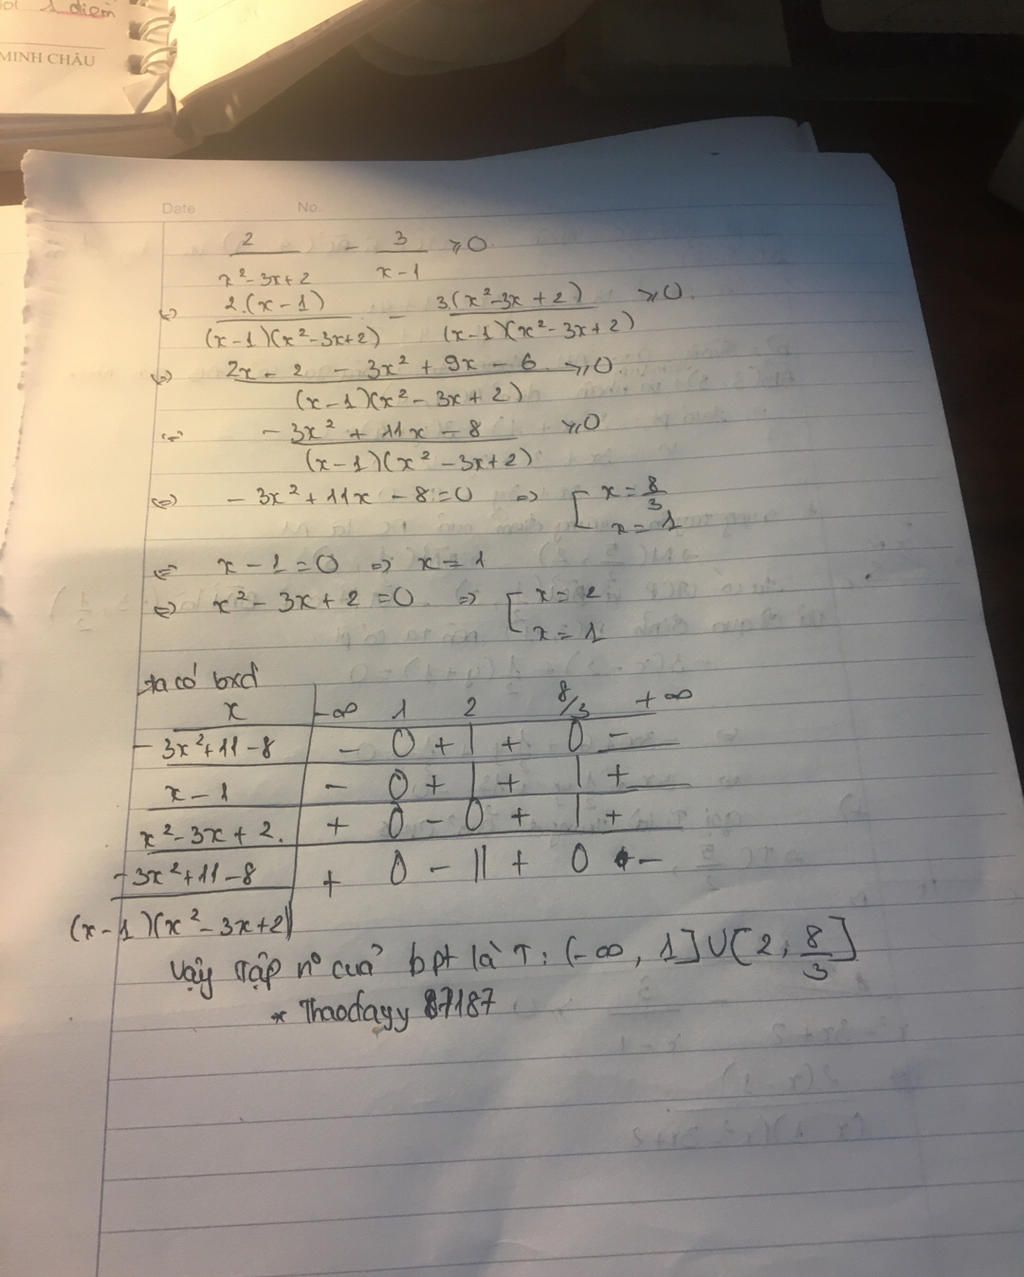 1 điểm
MINH CHÂU
Date No.
2/(x²-3x+2) - 3/(x-1) ⩾0
⇔ 2.(x-1)/((x-1)(x²-3x+2)) - 3.(x²-3x+2)/((x-1)(x²-3x+2)) ⩾0.
⇔ (2x-2-3x²+9x-6)/((x-1)(x²-3x+2)) ⩾0.
⇔ (-3x²+11x-8)/((x-1)(x²-3x+2)) ⩾0
⇔ -3x²+11x-8=0 ⇒ [ x=8/3
x=1
⇔ x-1=0 ⇒ x=1
⇔ x²-3x+2=0. ⇒ [ x=2
x=1
ta có bxd
x | -∞ 1 2 8/3 +∞
-3x²+11-8 | - 0 + | + 0 -
x-1 | - 0 + | + | +
x²-3x+2. | + 0 - 0 + | +
(-3x²+11-8)/((x-1)(x²-3x+2)) | + 0 - || + 0 -
Vậy tập n° của bpt là T: (-∞, 1]U[2, 8/3]
* Thaodayy 87187